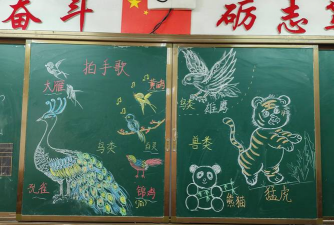 奋斗
励志
拍手歌
大雁
黄鹂
鸟类
孔雀
锦鸡
鸟类
雄鹰
兽类
熊猫
猛虎